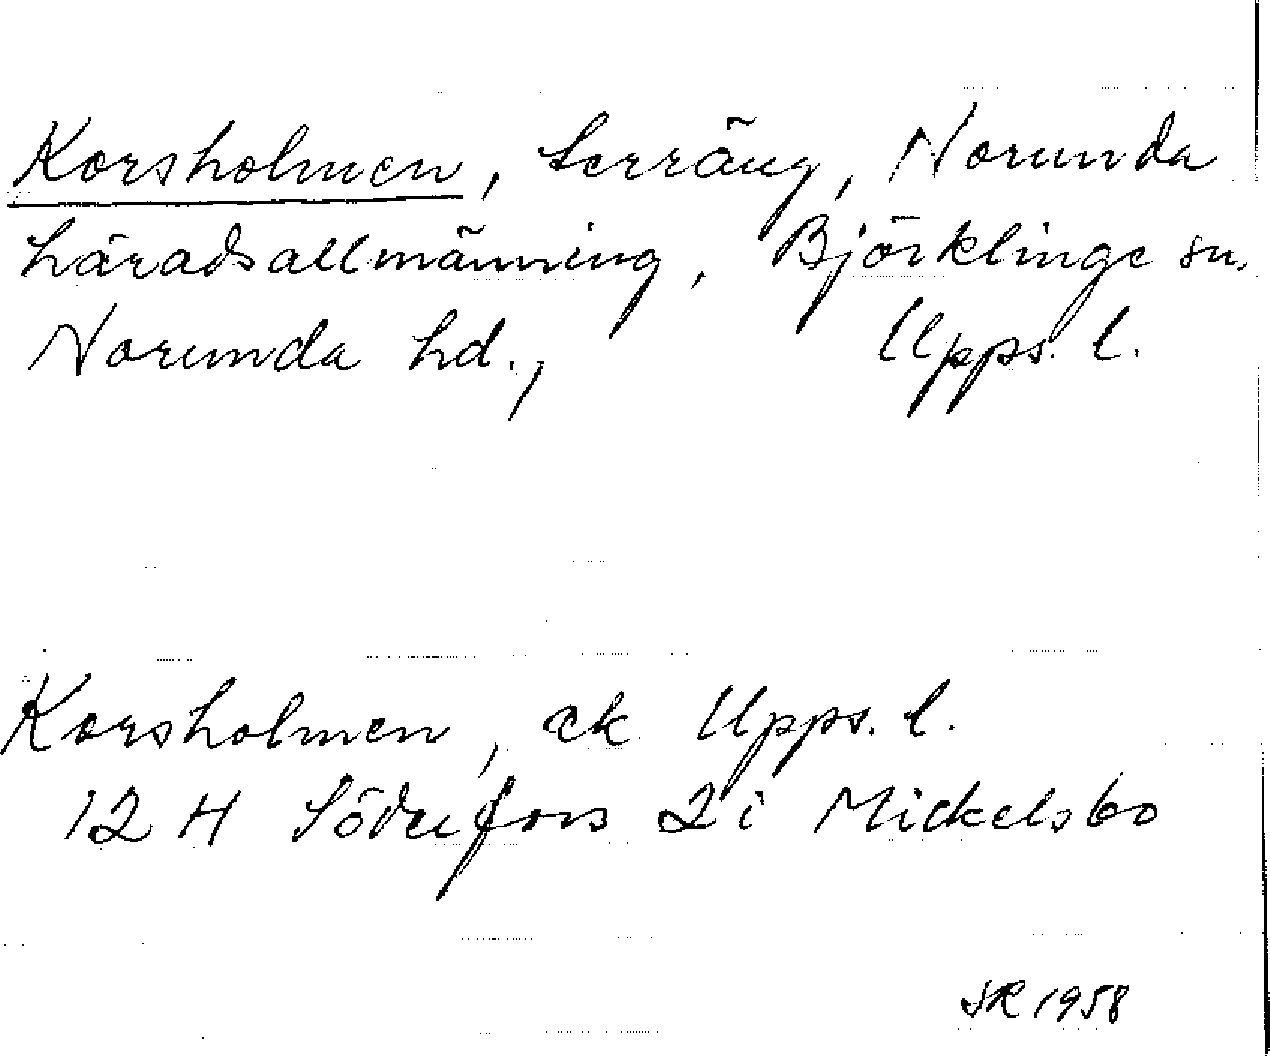 Korsholmen, terräng, Norunda
häradsallmänning, Björklinge sn,
Norunda hd., Upps. l.
Korsholmen, ek Upps. l.
12 H Söderfors 2 i Mickelsbo
SR 1958